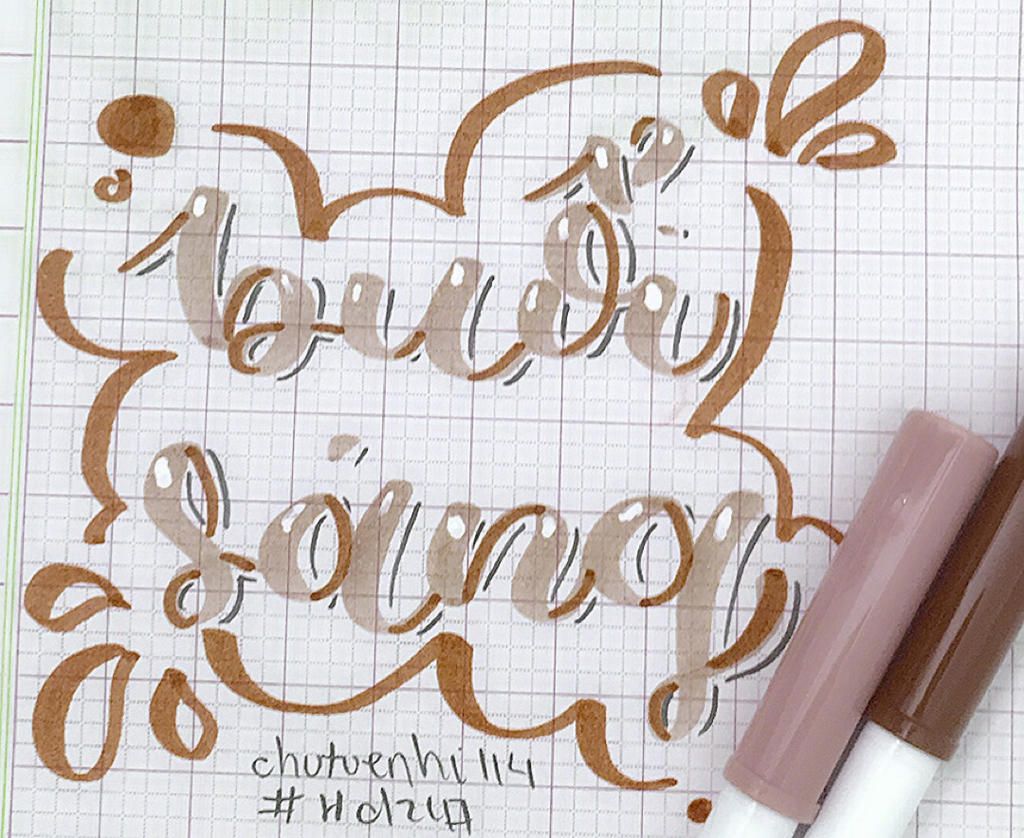 buổi
sáng
chutuenhi114